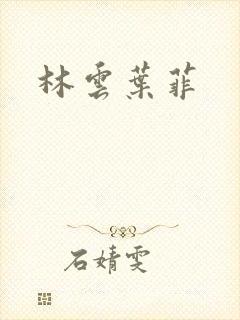 林雲葉菲
石婧雯